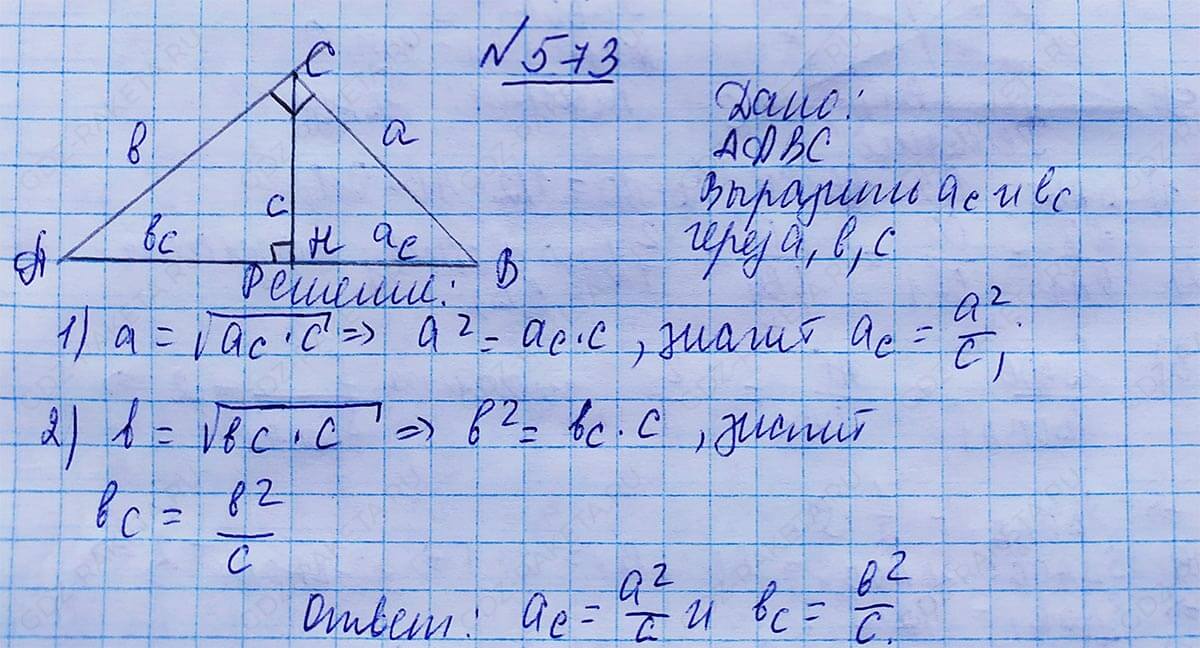 №573
C
в
a
c
вc
H
ac
A
B
Дано:
АСВС
Выразить ac и вc
через a, в, c
Решение:
1) a = √ac · c ⇒ a² = ac · c , значит ac = a²/c ;
2) в = √вc · c ⇒ в² = вc · c , значит
вc = в²/c
Ответ: ac = a²/c и вc = в²/c.